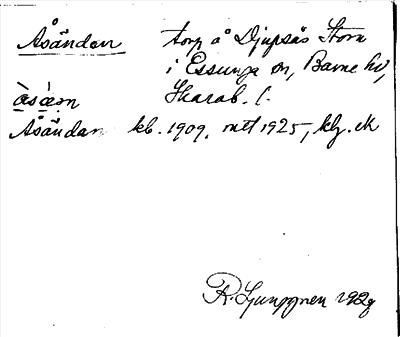 Åsändan torp å Djupsås Stom
i Essunga sn, Barne hd,
åsǽn Skarab. l.
Åsändan kb. 1909, mtl 1925, klg. EK
R. Ljunggren 1929